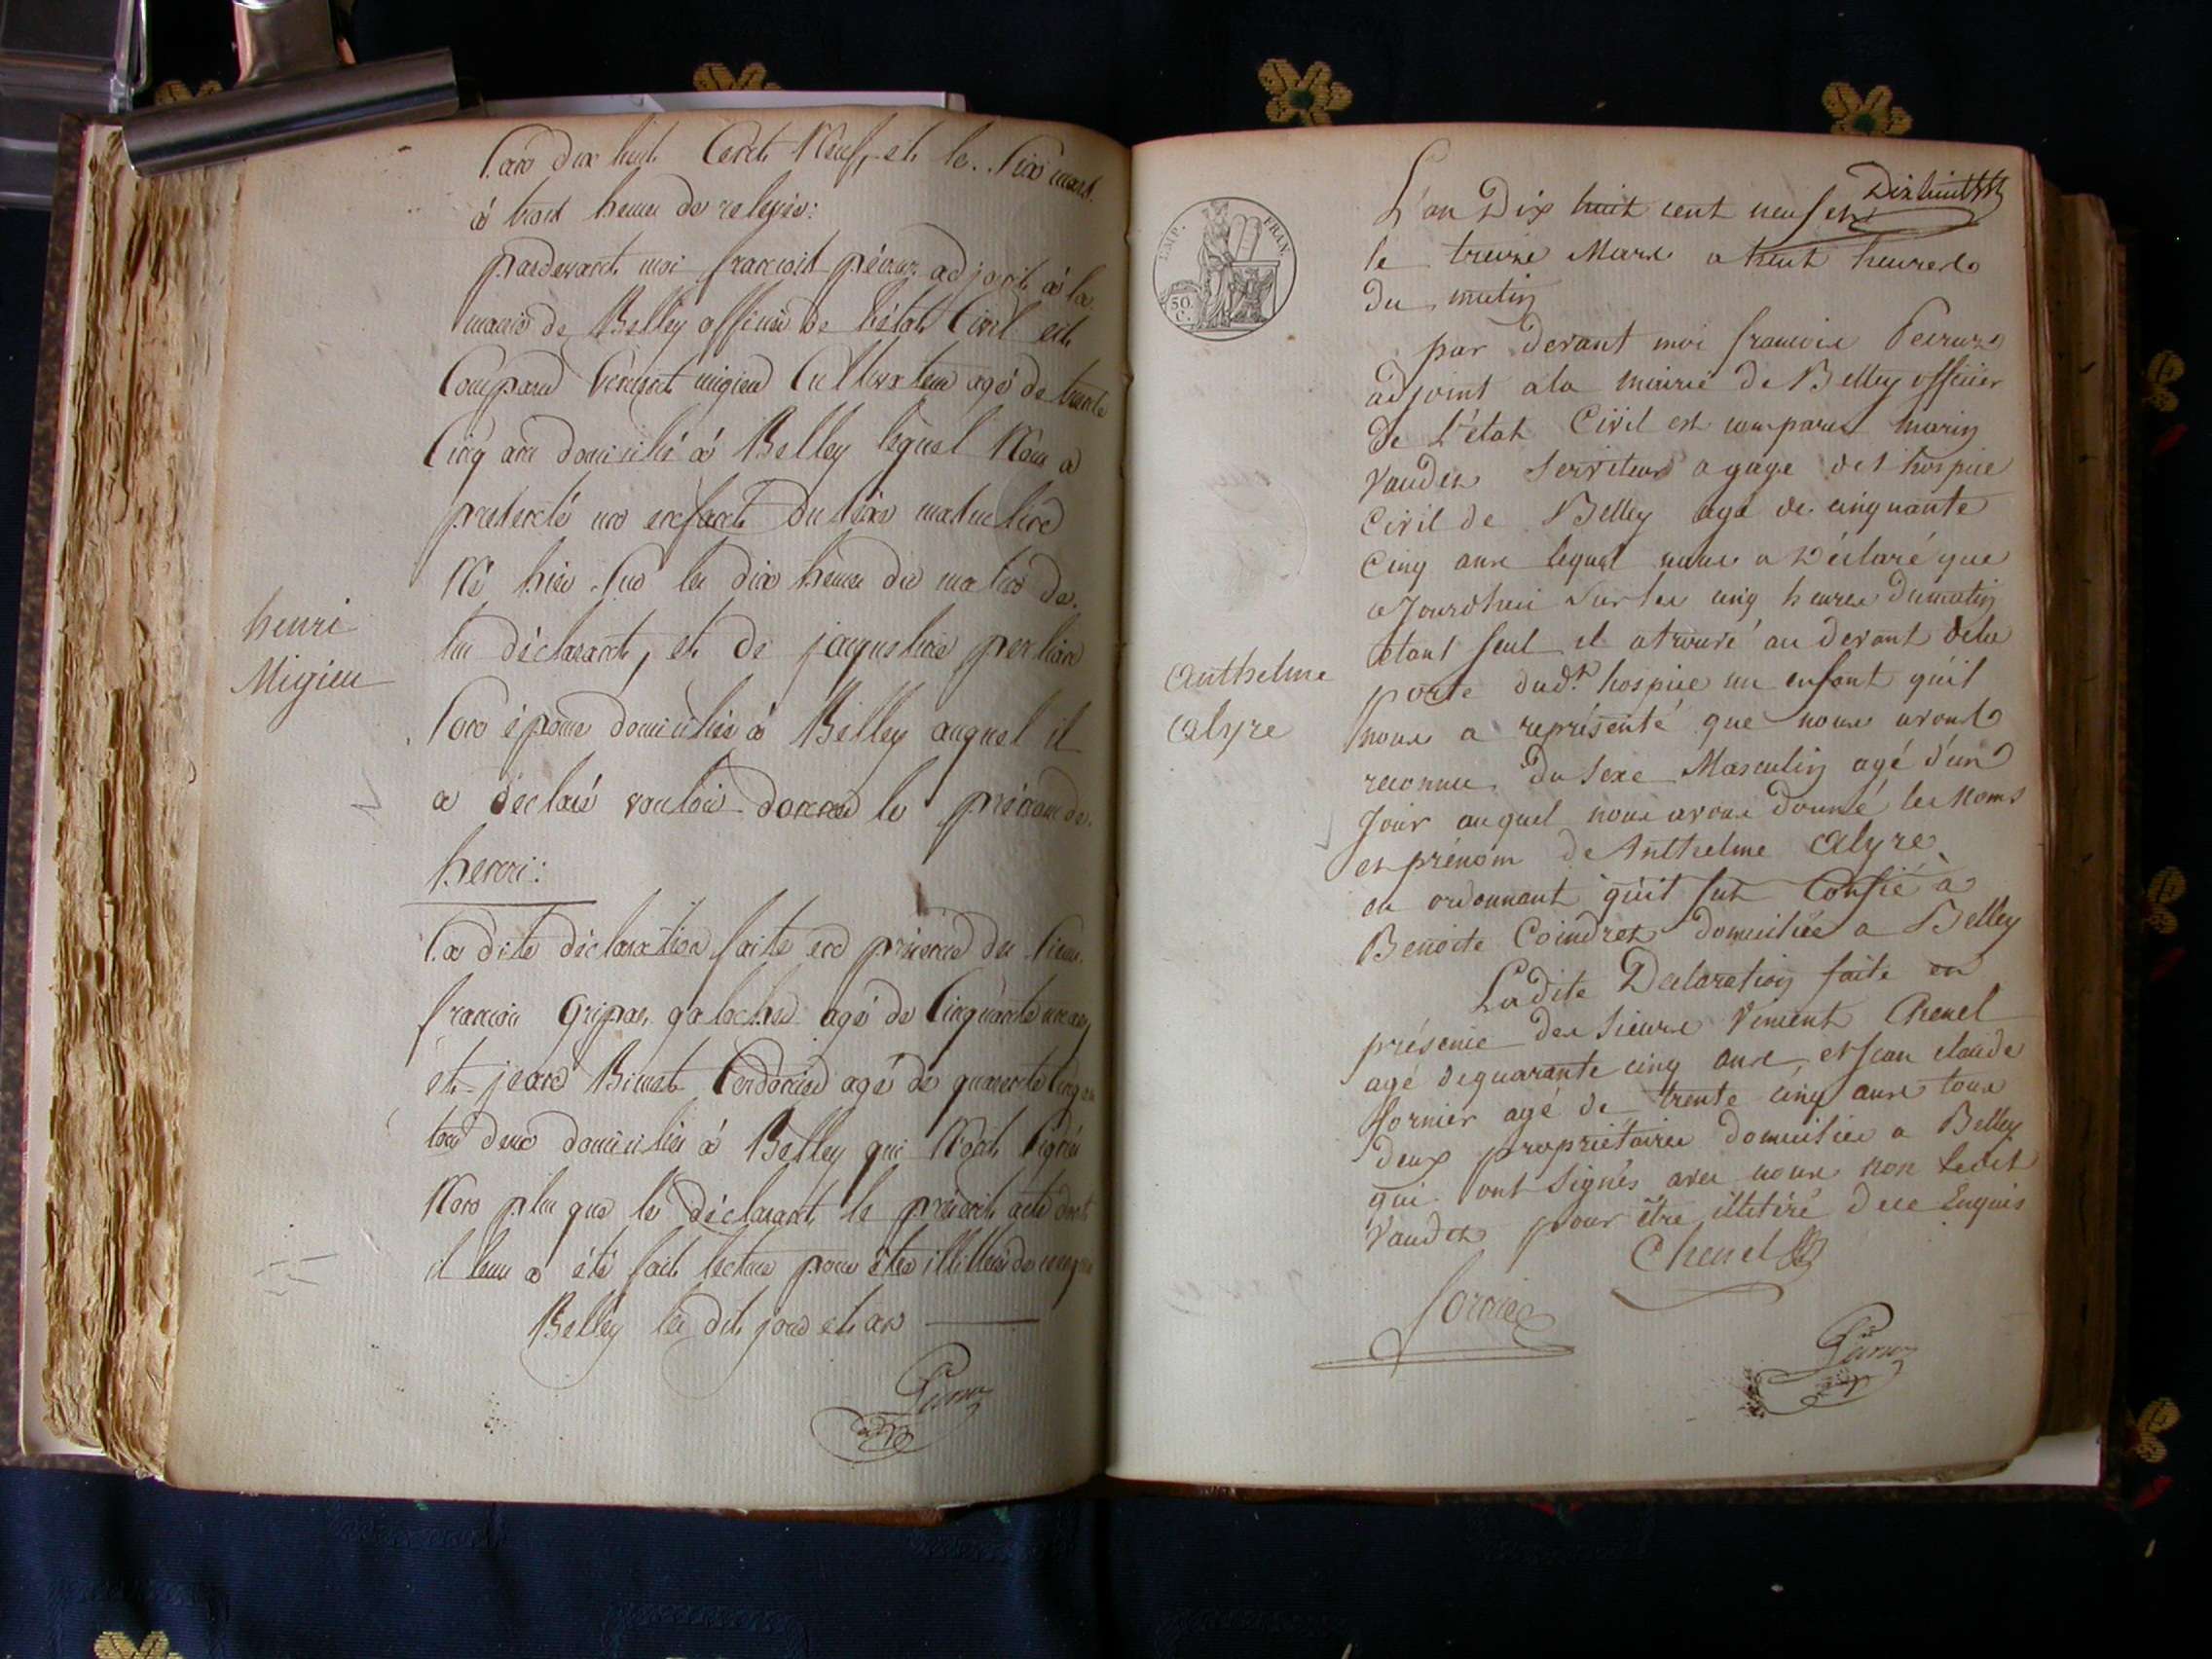 L'an dix huit Cent Neuf, et le Six mars
à trois heures de relevée:
pardevant moi françois péruz adjoint à la
mairie de Belley officier de l'état Civil est
Comparu vincent migieu Cultivateur agé de trente
Cinq ans domicilié à Belley lequel Nous a
présenté un enfant du séxe masculin
Né hier sur les dix heures du matin de
lui déclarant, et de jaqueline
Son épouse domiciliée à Belley auquel il
a déclaré vouloir donner le prénom de
henri:
henri
Migieu
La dite déclaration faite en présence des Sieurs
françois Gripas galochier agé de Cinquante
et jean Binet Cordonnier agé de quarente Cinq an
tous deux domiciliés à Belley qui N'ont Signés
Non plus que le déclarant, le présent acte dont
il leur a été fait lecture pour être illittérés de
Belley les dits jour et an
Péruz
IMP. FRAN.
50. C.
Dix huit
L'an Dix huit cent neuf et
le treize Mars a huit heures
du matin
par devant moi francois Peiruz
adjoint a la mairie de Belley officier
de L'état Civil est comparu marin
Vaudet Serviteur a gage de l'hospice
Civil de Belley agé de cinquante
Cinq ans lequel nous a Déclaré que
ajourdhui sur les cinq heures du matin
étant seul il a trouvé au devant dela
porte dud.t hospice un enfant qu'il
nous a représenté que nous avons
reconnu du Sexe Masculin agé d'un
Jour auquel nous avons donné les Noms
et prénom de Anthelme Alyre
en ordonnant qu'il fut Confié à
Benoite Coindret domiciliée a Belley
Anthelme
Alyre
Ladite Declaration faite en
présence des sieurs Vincent Chenel
agé de quarante cinq ans, et Jean claude
fornier agé de trente cinq ans tous
deux propriétaires domiciliés a Belley
qui ont signés avec nous non ledit
Vaudet pour être illitéré de ce Enquis
Chenel
fornier
Péruz